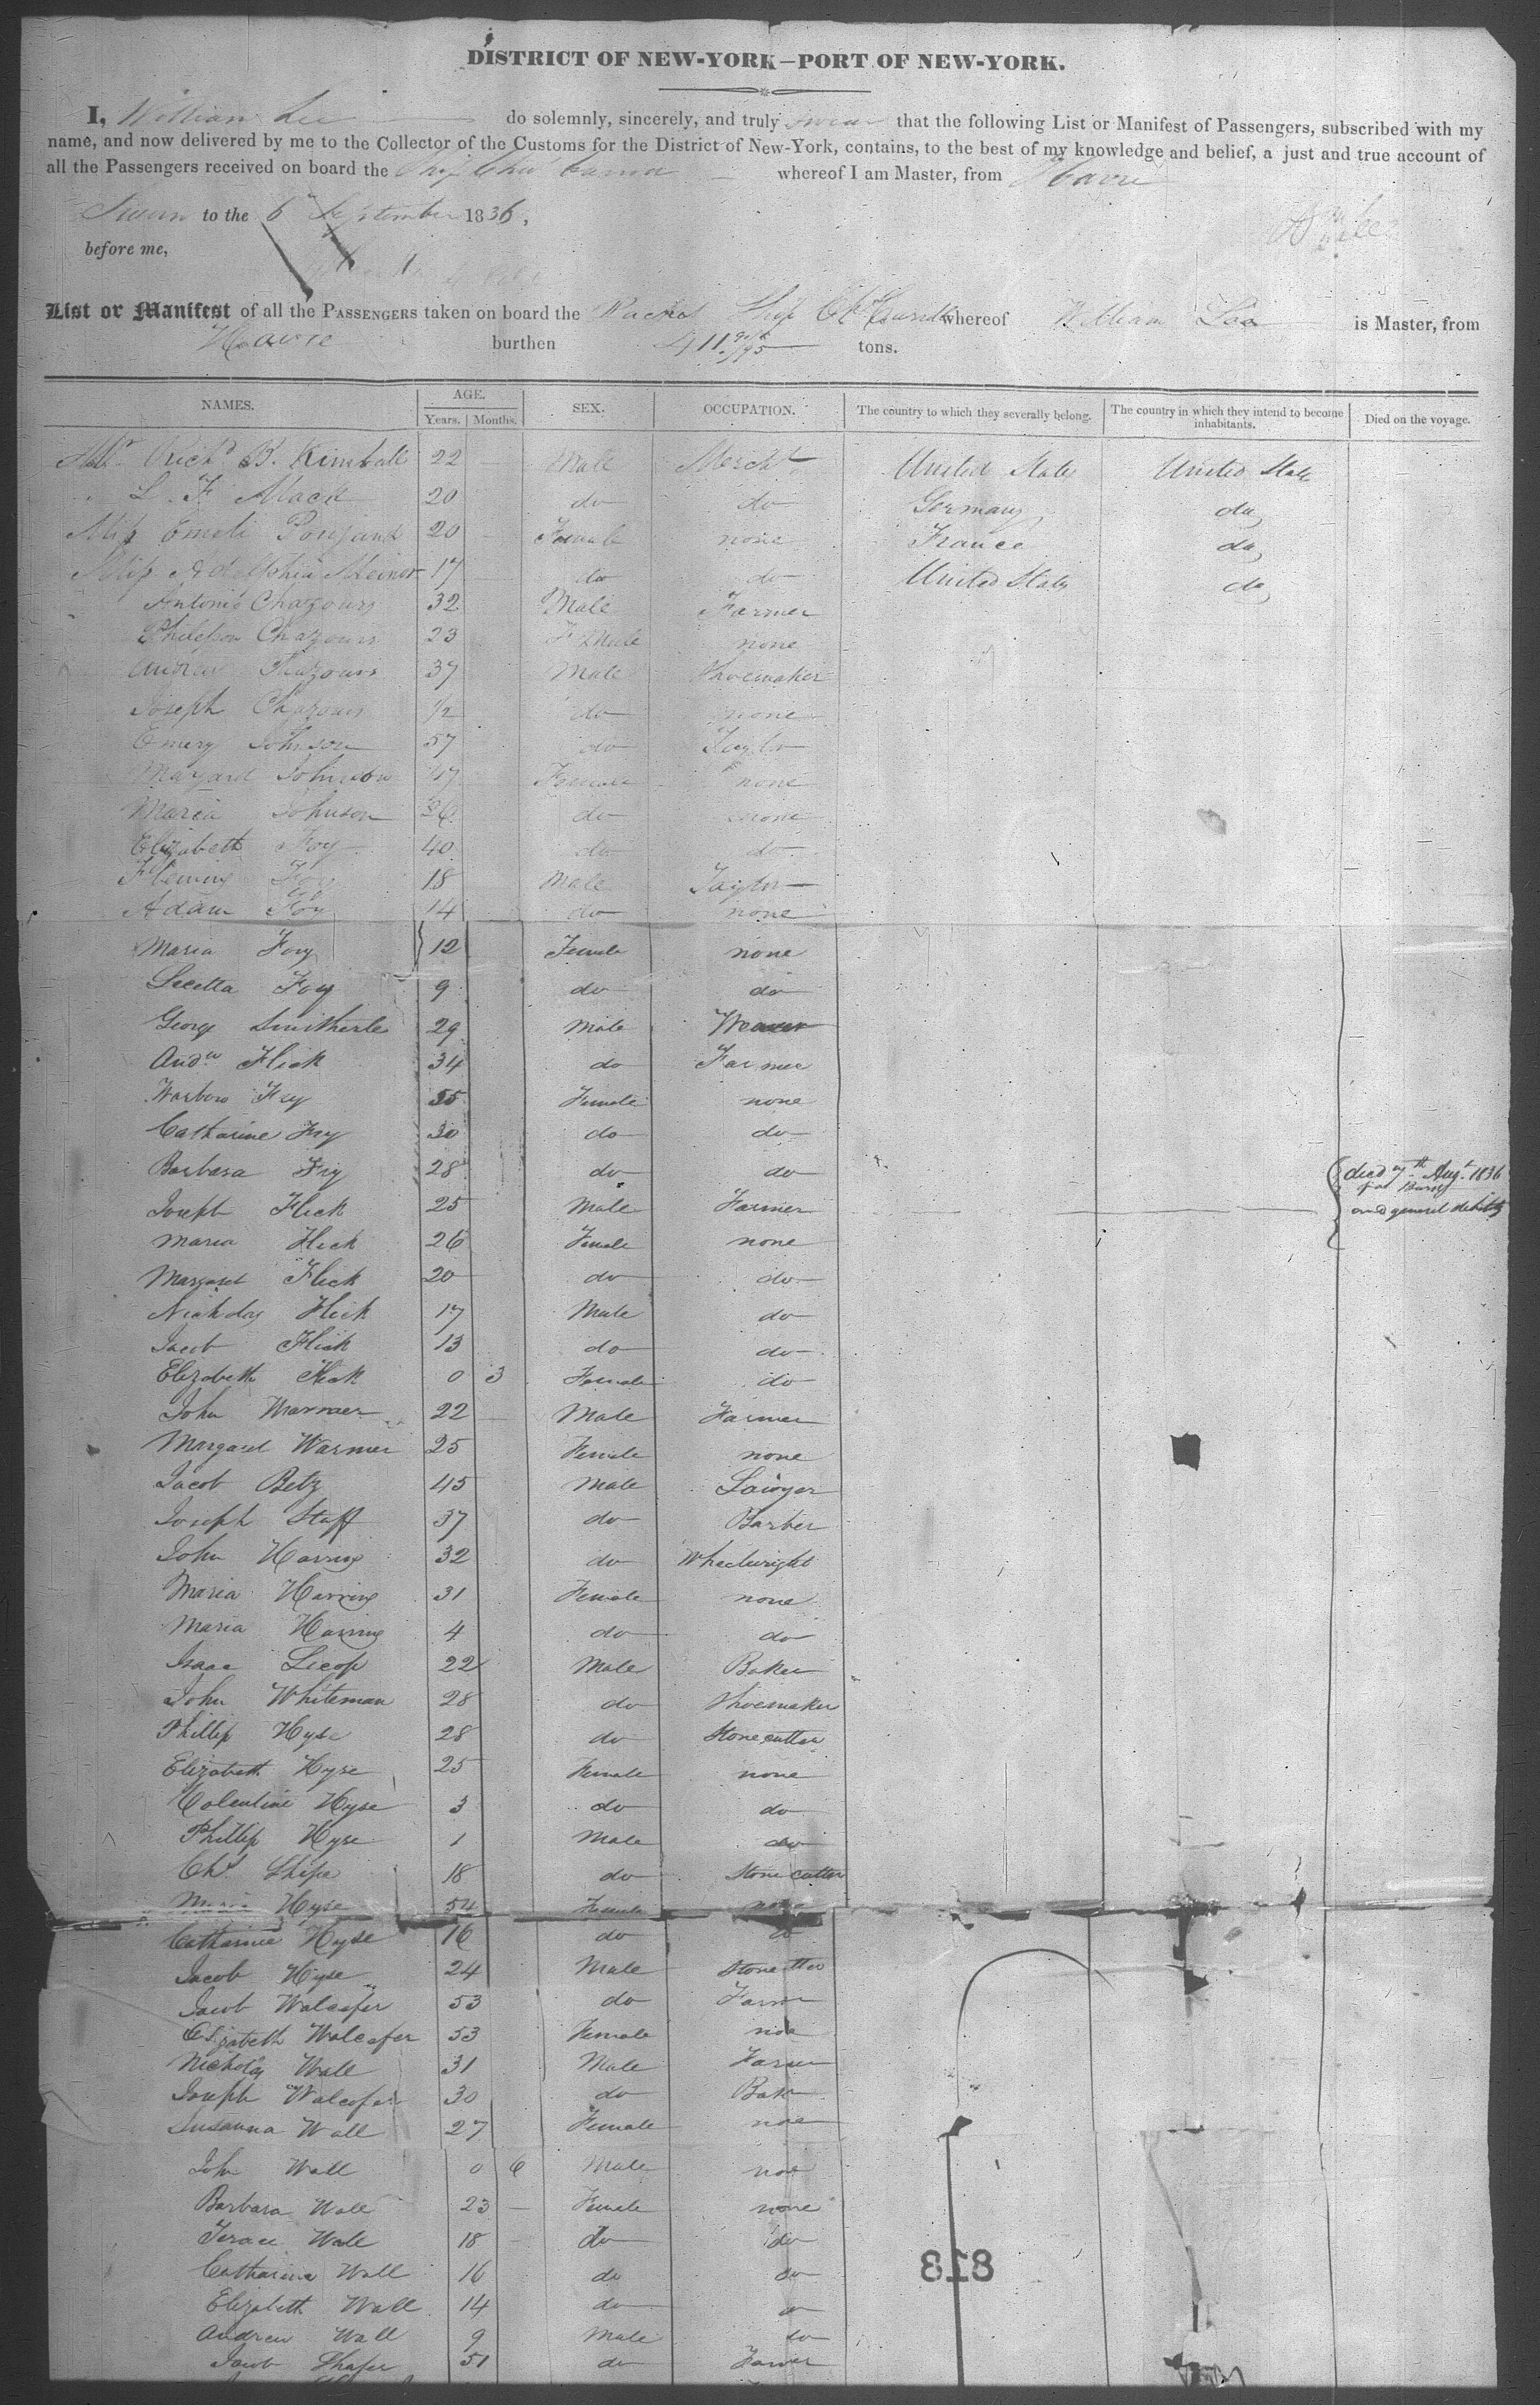 DISTRICT OF NEW-YORK—PORT OF NEW-YORK.
I, William Lee do solemnly, sincerely, and truly swear that the following List or Manifest of Passengers, subscribed with my
name, and now delivered by me to the Collector of the Customs for the District of New-York, contains, to the best of my knowledge and belief, a just and true account of
all the Passengers received on board the Ship whereof I am Master, from Havre
Sworn to the 6 September 1836,
before me,
List or Manifest of all the PASSENGERS taken on board the Packet Ship whereof William Lee is Master, from
Havre burthen 411 /95 tons.
NAMES. AGE. Years. Months. SEX. OCCUPATION. The country to which they severally belong. The country in which they intend to become inhabitants. Died on the voyage.
Mr. Richd B. Kimball 22 Male Mercht United States United States
L. F. Mack 20 do do Germany do
Miss 20 Female none France do
Miss Adelphia 17 do do United States do
Antonio Chazours 32 Male Farmer
Chazours 23 Female none
Andrew Chazours 37 Male Shoemaker
Joseph Chazours 1/2 do none
Emery Johnson 57 do Taylor
Johnson Female none
Maria Johnson do none
Elizabeth Foy 40 do do
Fleming Foy 18 Male Taylor
Adam Foy 14 do none
Maria Foy 12 Female none
Secetta Foy 9 do do
Georg 29 Male Weaver
Andw Flick 34 do Farmer
Fry 55 Female none
Catharine Fry 30 do do
Barbara Fry 28 do do
Joseph Flick 25 Male Farmer died 7th Augt 1836
Maria Flick 26 Female none and general debility
Margaret Flick 20 do do
Nicholas Flick 17 Male do
Jacob Flick 13 do do
Elizabeth Flick 0 3 Female do
John Warmer 22 Male Farmer
Margaret Warmer 25 Female none
Jacob Betz 45 Male Sawyer
Joseph Staff 37 do Barber
John Harring 32 do Wheelwright
Maria Harring 31 Female none
Maria Harring 4 do do
Isaac 22 Male Baker
John Whiteman 28 do Shoemaker
Phillip Hyse 28 do Stone cutter
Elizabeth Hyse 25 Female none
Valentine Hyse 3 do do
Phillip Hyse 1 Male do
Chs Shipe 18 do Stone cutter
Maria Hyse 54 Female none
Catharine Hyse 16 do do
Jacob Hyse 24 Male Stone cutter
Jacob Walcafer 53 do Farm
Elizabeth Walcafer 53 Female none
Nicholas Wall 31 Male Farmer
Joseph Walcafer 30 do Bak
Susanna Wall 27 Female none
John Wall 0 6 Male none
Barbara Wall 23 Female none
Wall 18 do do
Catharine Wall 16 do do
Elizabeth Wall 14 do do
Andrew Wall 9 Male do
Jacob Shafer 51 do Farmer
818